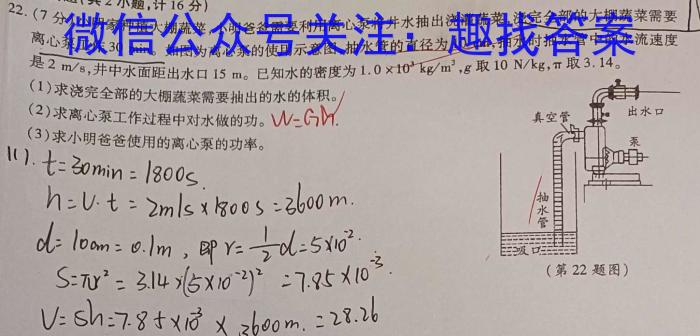 (共2小题,计16分)
22.(7分) 大棚蔬菜,小明爸爸需要利用离心泵将井水抽出浇灌蔬菜,浇完全部的大棚蔬菜需要
微信公众号关注:趣找答案
离心泵 30 min.如图为离心泵的使用示意图,抽水管的直径为 水流速度
是2 m/s,井中水面距出水口15 m。已知水的密度为1.0×10³ kg/m³,g取10 N/kg,π取3.14。
(1)求浇完全部的大棚蔬菜需要抽出的水的体积。
(2)求离心泵工作过程中对水做的功。W=Gh.
(3)求小明爸爸使用的离心泵的功率。
(1). t=30min=1800s.
h=v·t=2m/s×1800s=3600m.
d=10cm=0.1m,即r=½d=5×10⁻².
S=πr²=3.14×(5×10⁻²)²=7.85×10⁻³.
V=Sh=7.85×10⁻³×3600m.=28.26
真空管
出水口
泵
抽水管
吸口
(第22题图)